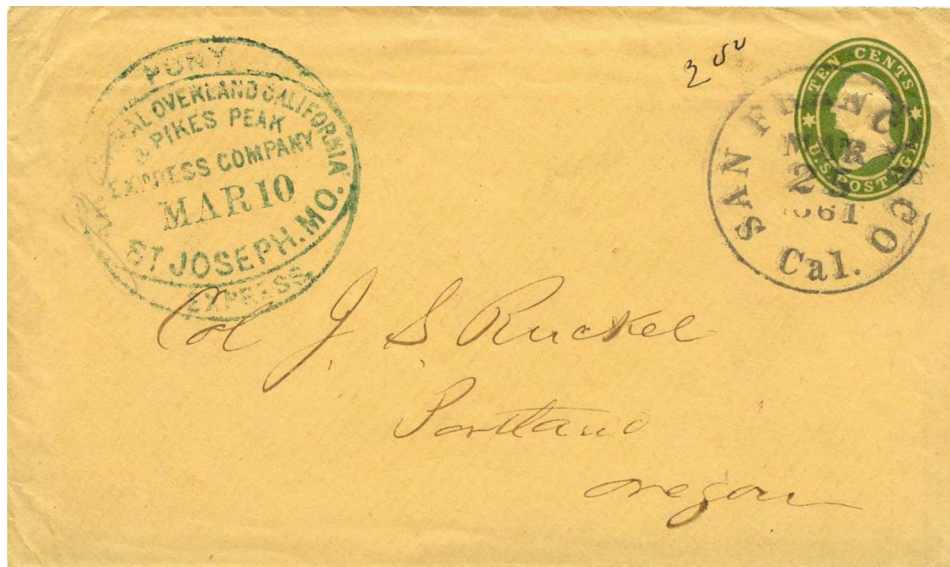 PONY
CENTRAL OVERLAND CALIFORNIA
& PIKES PEAK
EXPRESS COMPANY
MAR 10
ST JOSEPH. MO.
EXPRESS
2 00
TEN CENTS
U.S. POSTAGE
SAN FRANCISCO
MAR
1861
Cal.
Col J. S Ruckel
Portland
Oregon